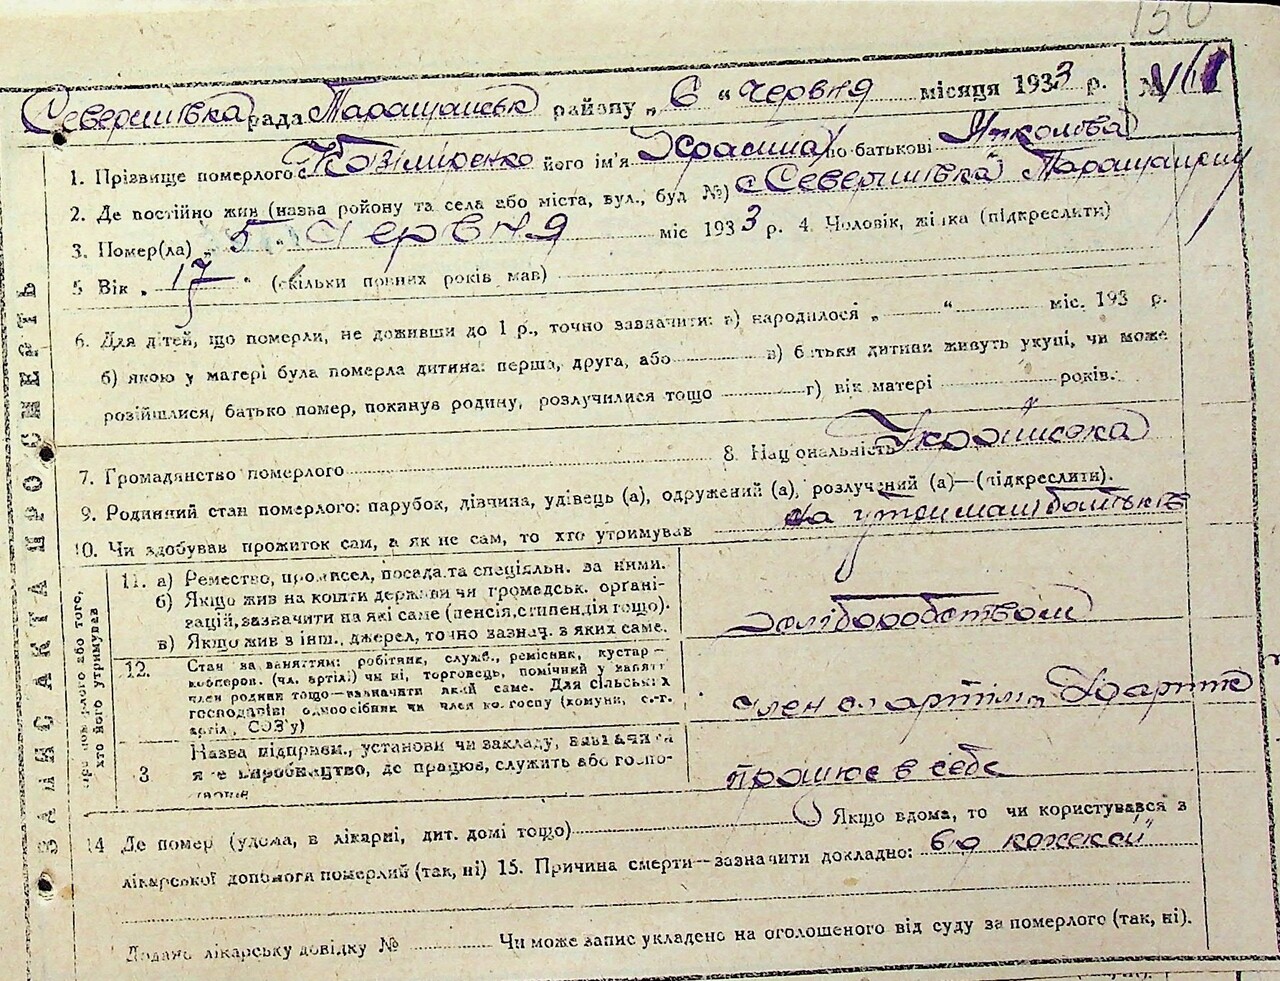 150
Северинівка рада Таращанськ району „ 6 “ червня місяця 1933 р. №
1. Прізвище померлого його ім'я по батькові
2. Де постійно жив (назва району та села або міста, вул., буд №) с Северинівка
3. Помер(ла) „ 5 “ червня міс 1933 р. 4. Чоловік, жінка (підкреслити)
5 Вік „ 17 “ (скільки повних років мав)
6. Для дітей, що померли, не доживши до 1 р., точно зазначити: а) народилося „ “ міс. 193 р.
б) якою у матері була померла дитина: перша, друга, або в) батьки дитини живуть укупі, чи може
розійшлися, батько помер, покинув родину, розлучилися тощо г) вік матері років.
7. Громадянство померлого 8. Національність Українська
9. Родинний стан померлого: парубок, дівчина, удівець (а), одружений (а), розлучений (а)—(підкреслити).
10. Чи здобував прожиток сам, а як не сам, то хто утримував на утриман батьків
ЗАПИС АКТА ПРО СМЕРТЬ
про померлого або того,
хто його утримував
11. а) Ремество, промисел, посада та спеціяльн. за ними.
б) Якщо жив на кошти держави чи громадськ. органі-
зацій, зазначити на які саме (пенсія, стипендія тощо).
в) Якщо жив з інш. джерел, точно зазнач. з яких саме.
хліборобством
12. Стан за заняттям: робітник, служб., ремісник, кустар—
кооперов. (чл. артілі) чи ні, торговець, помічний у занятті
член родини тощо—зазначити який саме. Для сільських
господарів: одноосібник чи член колгоспу (комуни, с.-г.
артіл., СОЗ'у)
член с. г артілі
3 Назва підприєм., установи чи закладу, визначити
яке виробництво, де працює, служить або госпо-
дарює
працює в себе
14 Де помер (удома, в лікарні, дит. домі тощо) Якщо вдома, то чи користувався з
лікарської допомоги померлий (так, ні) 15. Причина смерти—зазначити докладно:
Додано лікарську довідку № Чи може запис укладено на оголошеного від суду за померлого (так, ні).